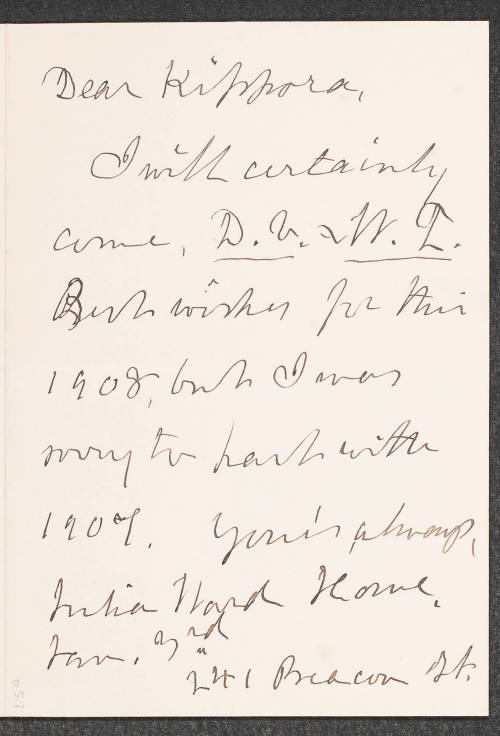 Dear Kippora,
I will certainly
come, D.V. & W.
Best wishes for this
1908, but I was
sorry to part with
1907. Your's always,
Julia Ward Howe.
Jan. 3rd
241 Beacon St.
USA